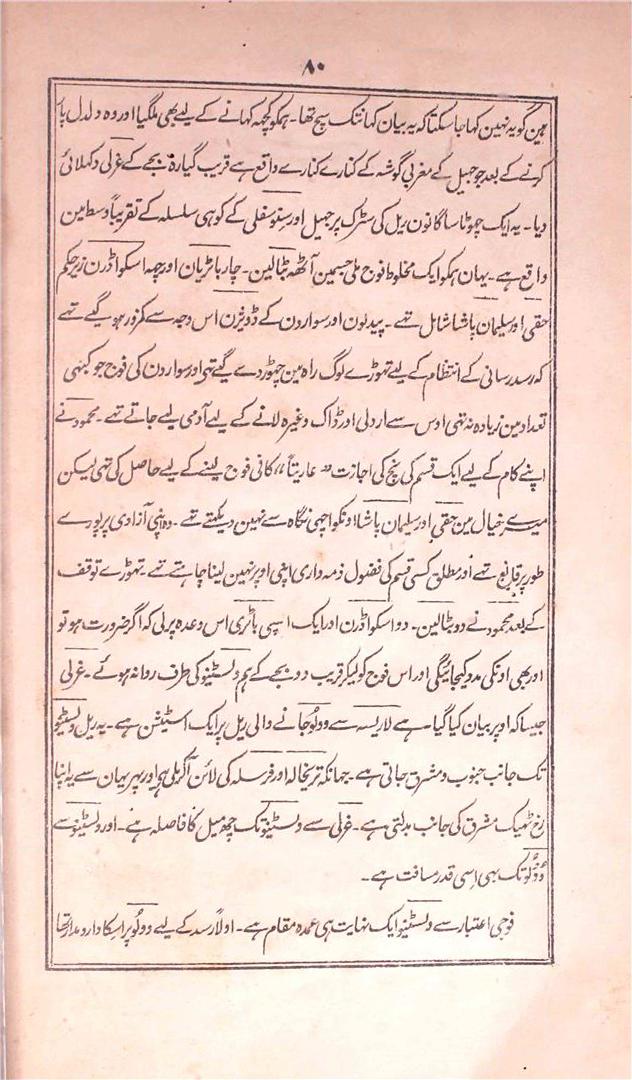 ۸۰
ہین گو یہ نہین کہا جا سکتا کہ یہ بیان کہانتک سچ تھا۔ ہمکو کچھ کہانے کے لیے بھی ملگیا اور وہ دلدل پار
کرنے کے بعد جو جہیل کے مغربی گوشہ کے کنارے کنارے واقع ہے قریب گیارہ بجے کے غرلی دکہلائی
دیا۔ یہ ایک چہوٹا سا گانون ریل کی سڑک پر جہیل اور سنوسفلی کے کوہی سلسلہ کے تقریباً وسط مین
واقع ہے۔ یہان ہمکو ایک مخلوط فوج ملی جسمین آٹھہ بٹالین۔ چار باٹریان اور چہہ اسکواڈرن زیر حکم
حقی اور سلیمان پاشا شامل تہے۔ پیدلون اور سوارون کے ڈویژن اس وجہ سے کمزور ہو گیے تہے
کہ رسد رسانی کے انتظام کے لیے تہوڑے لوگ راہ مین چہوڑ دے گیے تہے اور سوارون کی فوج جو کبہی
تعداد مین زیادہ نہ تہی اوس سے اردلی اور ڈاک وغیرہ لانے کے لیے آدمی لیے جاتے تہے۔ محمود نے
اپنے کام کے لیے ایک قسم کی نج کی اجازت "عاریتاً" کافی فوج لینے کے لیے حاصل کی تہی لیکن
میرے خیال مین حقی اور سلیمان پاشا اونکو اچہی نگاہ سے نہین دیکہتے تہے۔ وہ اپنی آزادی پر پورے
طور پر قانع تہے اور مطلق کسی قسم کی فضول ذمہ داری اپنی اوپر نہین لینا چاہتے تہے۔ تہوڑے توقف
کے بعد محمود نے دو بٹالین۔ دو اسکواڈرن اور ایک اسپی باٹری اس وعدہ پر لی کہ اگر ضرورت ہو تو
اور بھی اونکی مدد کیجائیگی اور اس فوج کو لیکر قریب دو بجے کے ہم ولسٹینو کی طرف روانہ ہوئے۔ غرلی
جیسا کہ اوپر بیان کیا گیا۔ ہے لاریسہ سے وولو جانے والی ریل پر ایک اسٹیشن ہے۔ یہ ریل ولسٹینو
تک جانب جنوب و مشرق جاتی ہے۔ جہانکہ تریخالہ اور فرسلہ کی لائن آکر ملی ہے اور پہر یہان سے یہ اپنا
رخ ٹہیک مشرق کی جانب بدلتی ہے۔ غرلی سے ولسٹینو تک چھ میل کا فاصلہ ہے۔ اور ولسٹینو سے
وولو تک بھی اسی قدر مسافت ہے۔
فوجی اعتبار سے ولسٹینو ایک نہایت ہی عمدہ مقام ہے۔ اولاً رسد کے لیے وولو پر اسکا دارومدار تھا